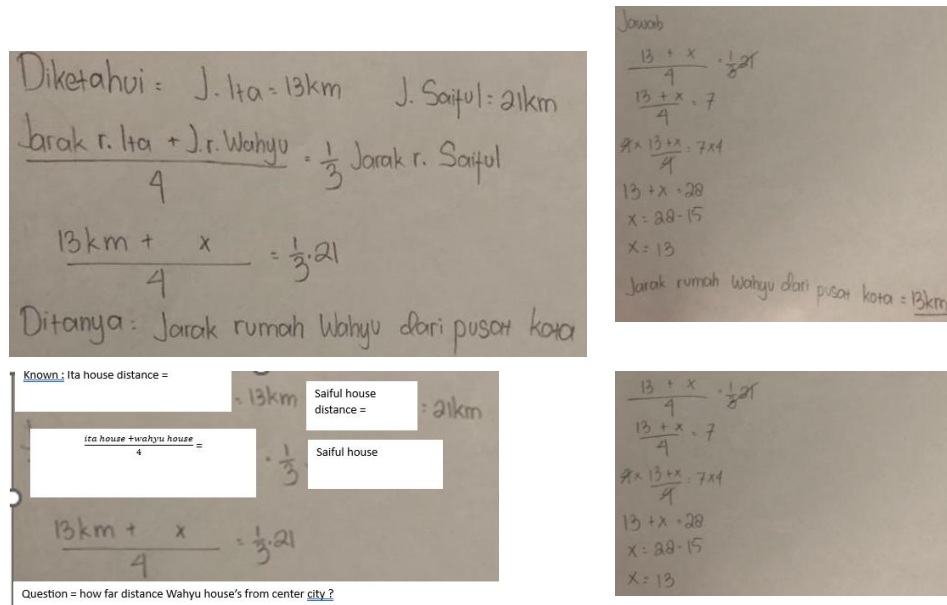 Diketahui = J. Ita = 13km J. Saiful = 21km
Jarak r. Ita + J. r. Wahyu / 4 = 1/3 Jarak r. Saiful
13km + x / 4 = 1/3 . 21
Ditanya : Jarak rumah Wahyu dari pusat kota
Jawab
13 + x / 4 = 1/3 21
13 + x / 4 = 7
4 x 13 + x / 4 = 7 x 4
13 + x = 28
x = 28 - 15
x = 13
Jarak rumah Wahyu dari pusat kota = 13km
Known : Ita house distance = = 13km Saiful house distance = = 21km
ita house +wahyu house / 4 = = 1/3 Saiful house
13km + x / 4 = 1/3 . 21
Question = how far distance Wahyu house's from center city ?
13 + x / 4 = 1/3 21
13 + x / 4 = 7
4 x 13 + x / 4 = 7 x 4
13 + x = 28
x = 28 - 15
x = 13